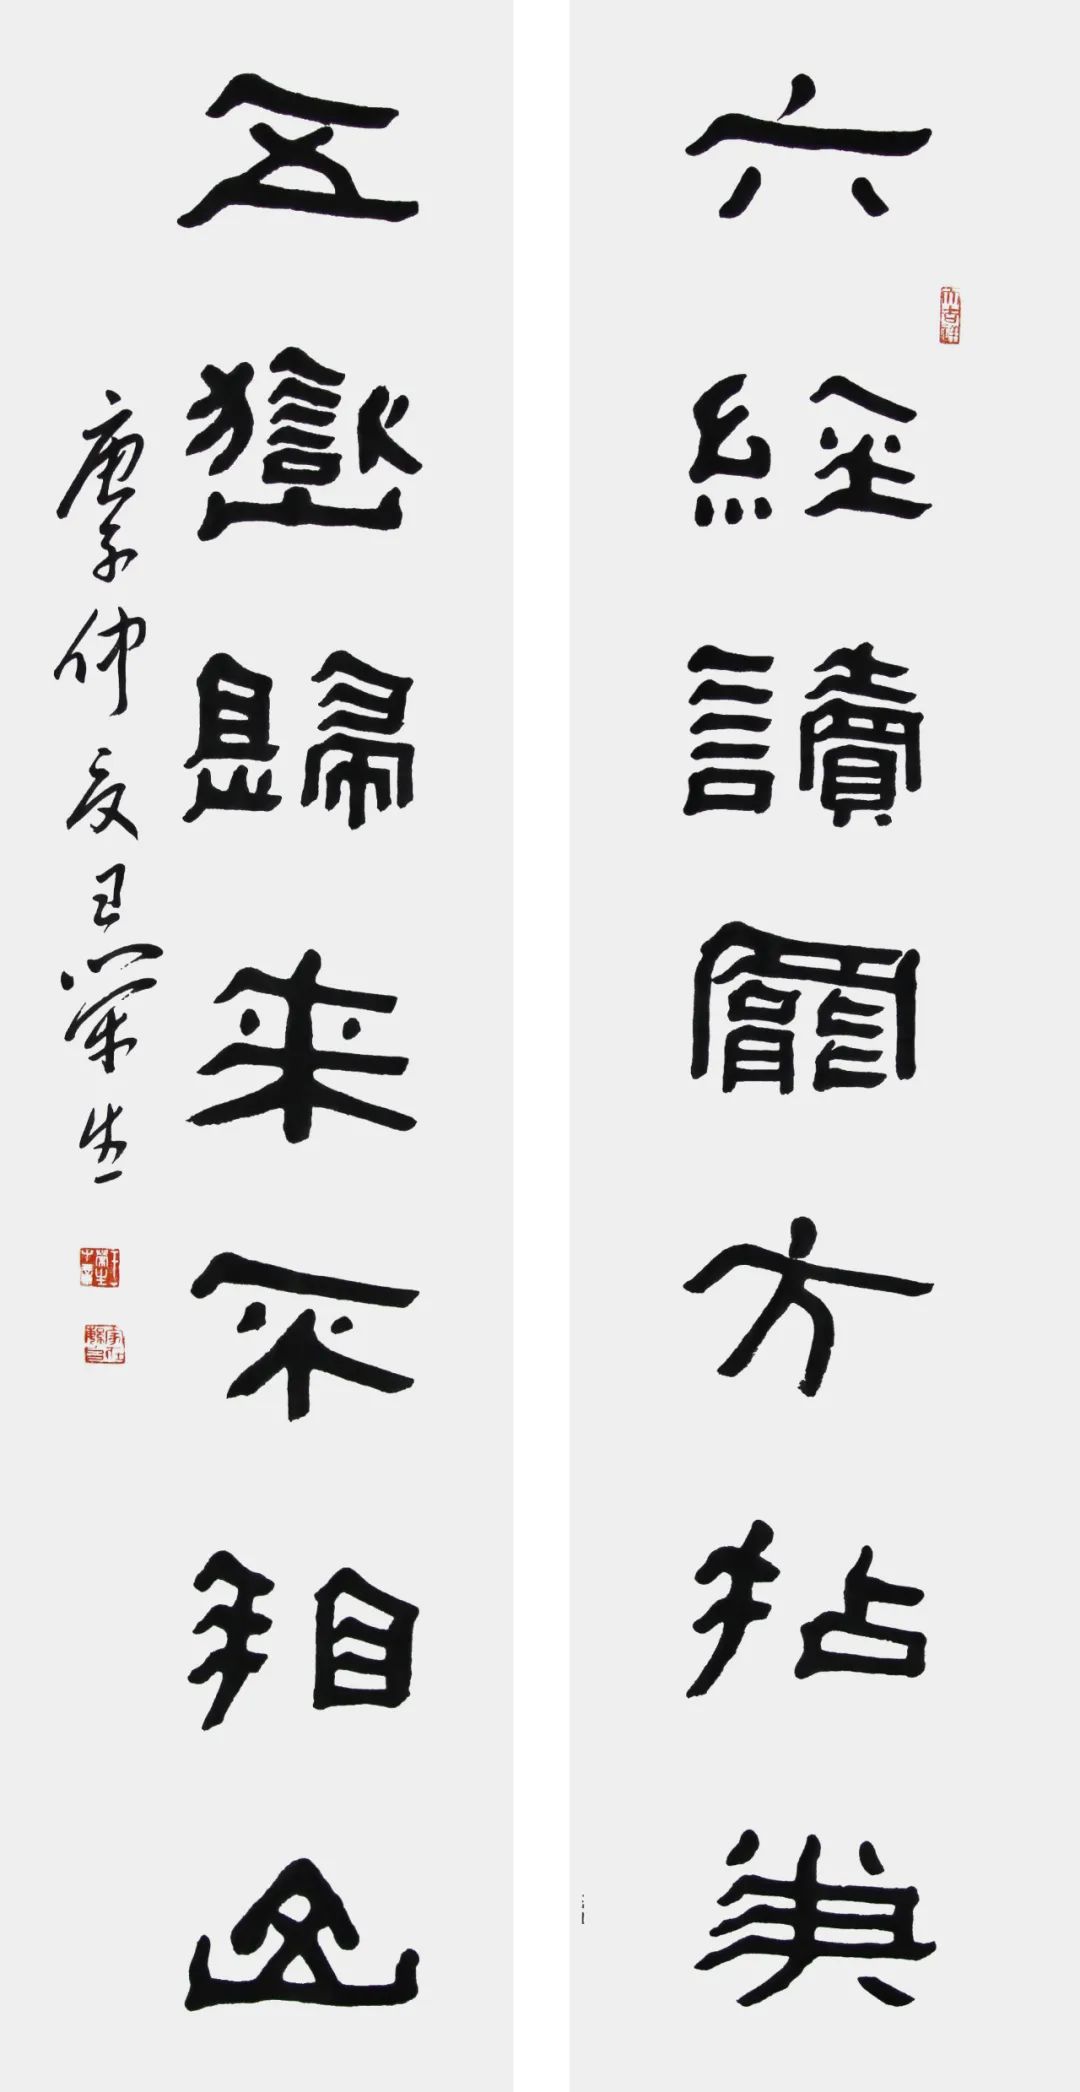 六經讀罷方拈筆
大吉祥
五嶽歸來不看山
庚子仲夏王荣生